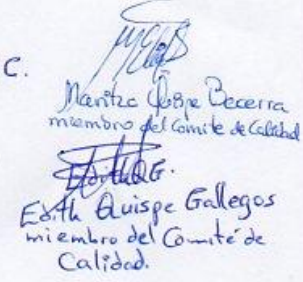 C.
Maritza Quispe Becerra
miembro del Comite de Calidad
EdithQG.
Edith Quispe Gallegos
miembro del Comité de
Calidad.